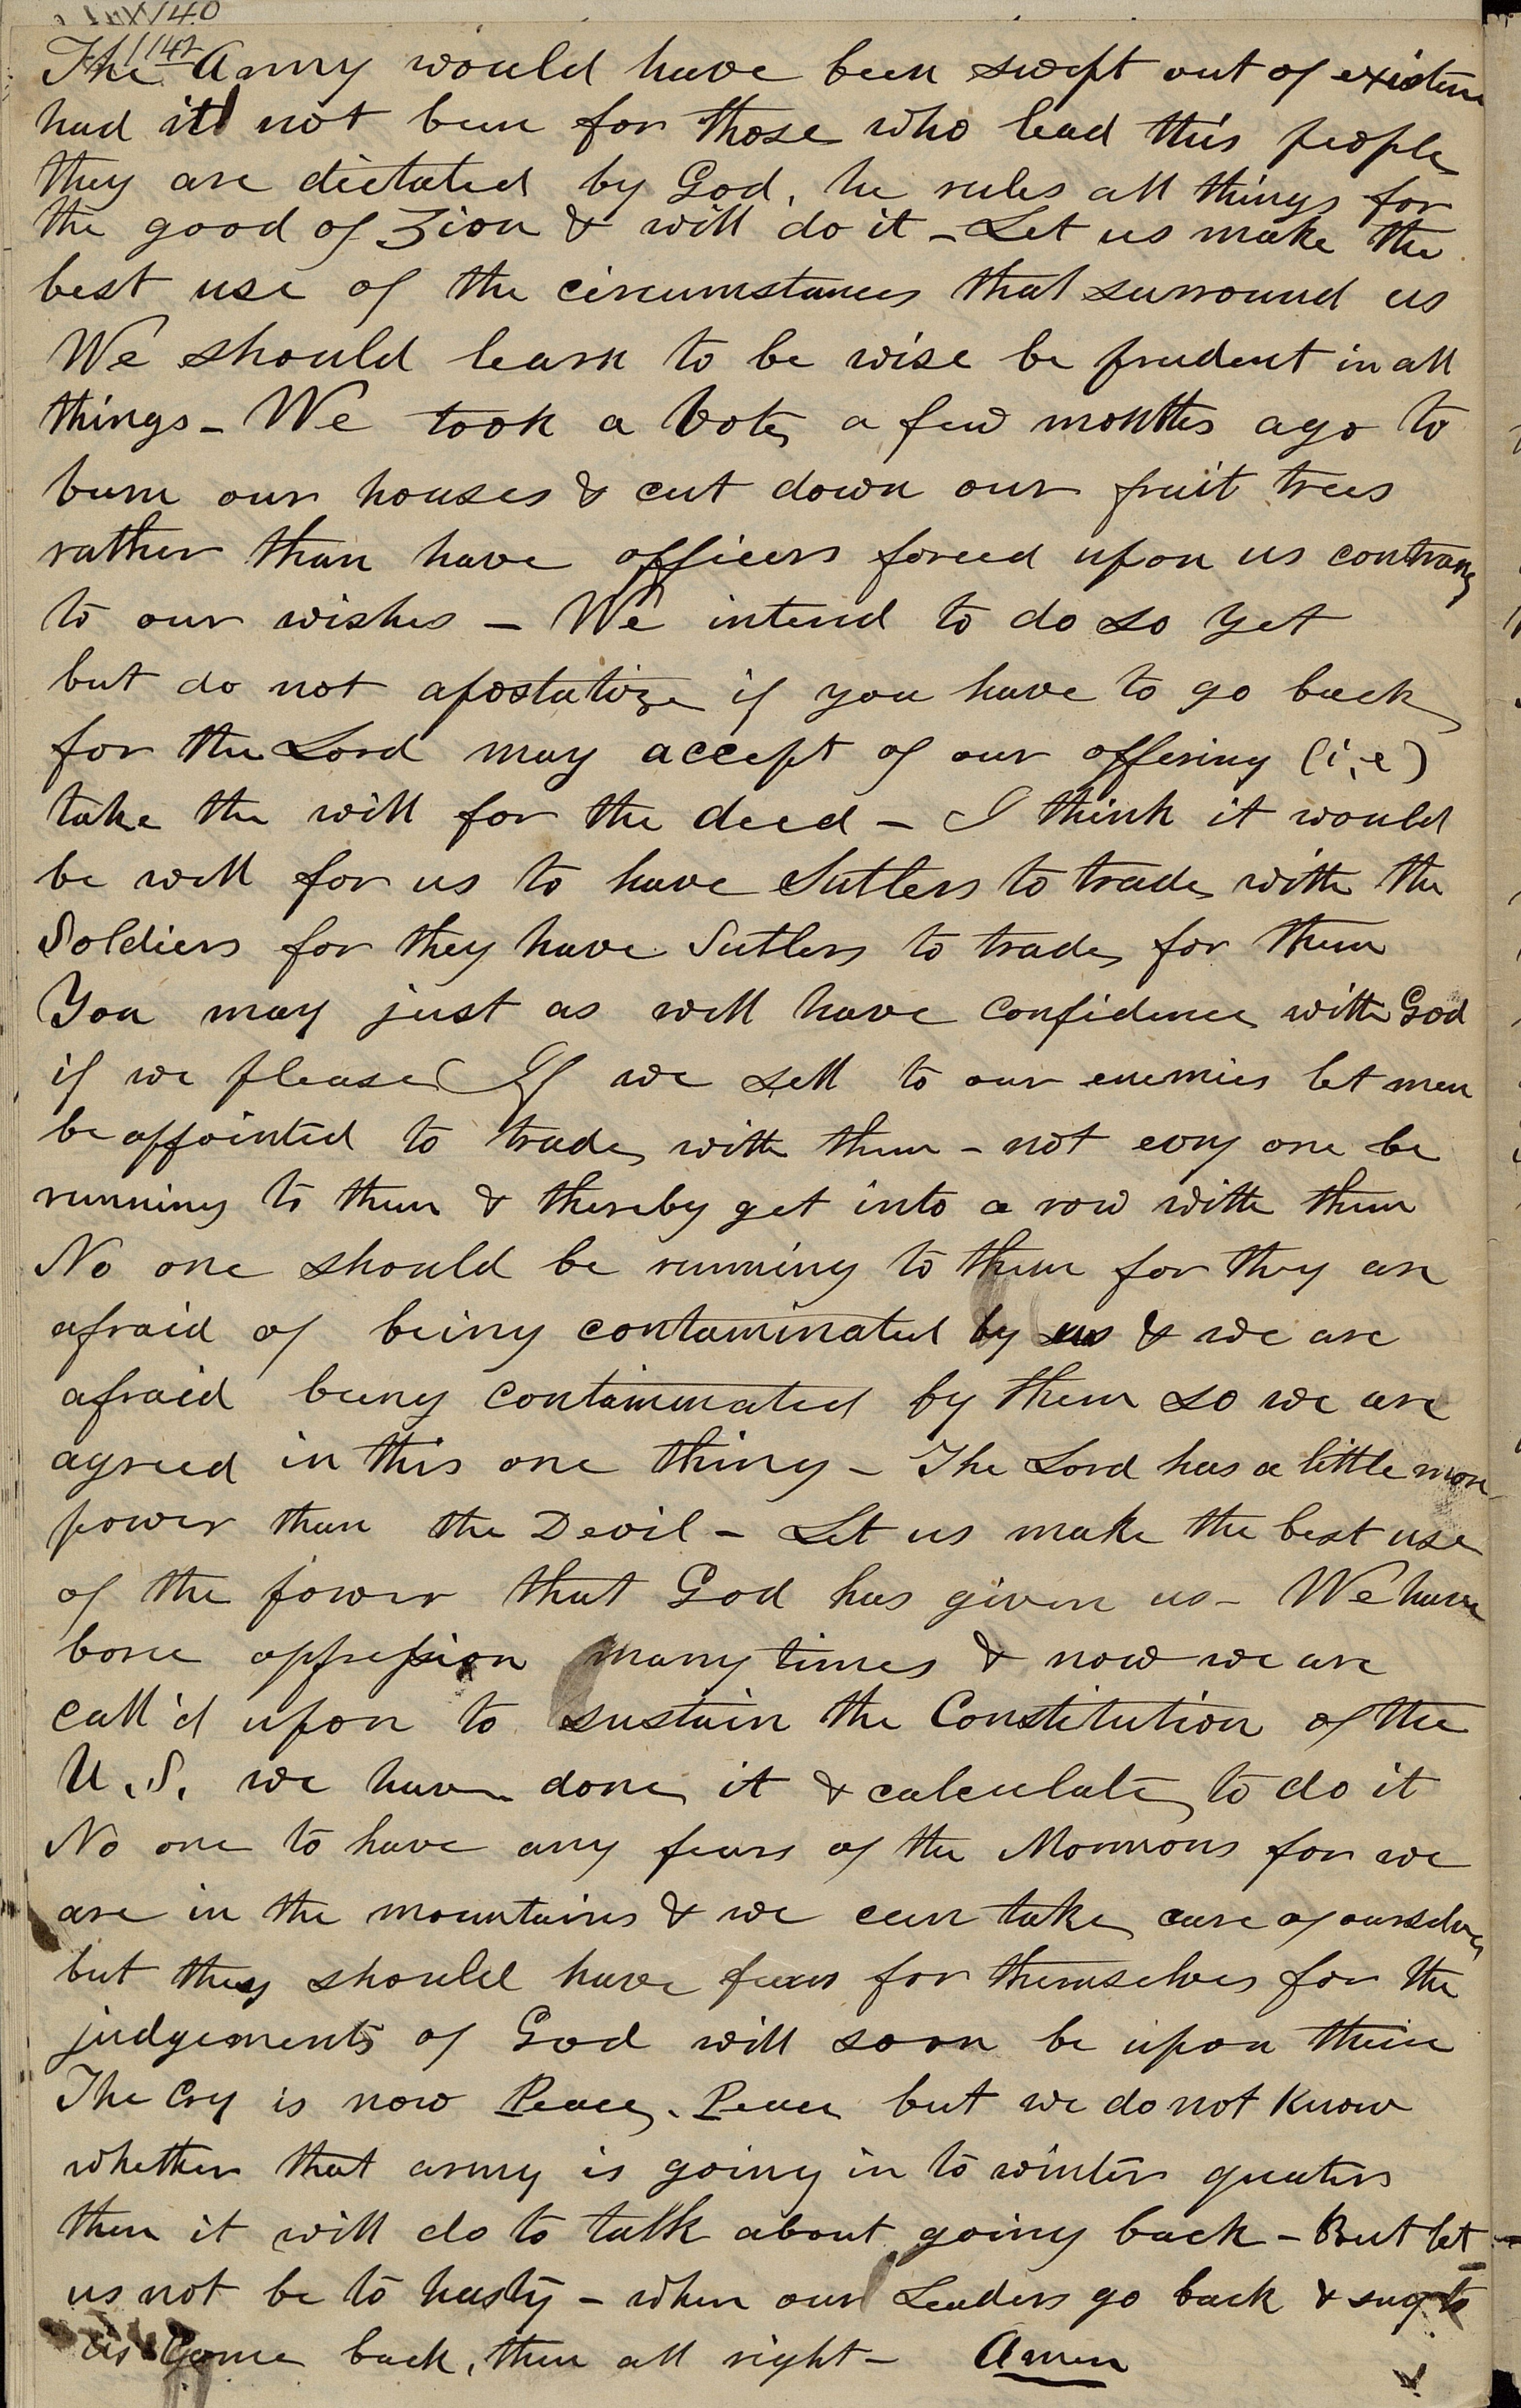 140
142
The Army would have been swept out of existence
had it not been for those who lead this people
they are dictated by God, he rules all things for
the good of Zion & will do it - Let us make the
best use of the circumstances that surround us
We should learn to be wise be prudent in all
things - We took a vote a few months ago to
burn our houses & cut down our fruit trees
rather than have officers forced upon us contrary
to our wishes - We intend to do so yet
but do not apostatize if you have to go back
for the Lord may accept of our offering (i.e)
take the will for the deed - I think it would
be well for us to have Sutlers to trade with the
Soldiers for they have Sutlers to trade for them
You may just as well have confidence with God
if we please If we sell to our enemies let men
be appointed to trade with them - not evry one be
running to them & thereby get into a row with them
No one should be running to them for they are
afraid of being contaminated by us & we are
afraid being contaminated by them so we are
agreed in this one thing - The Lord has a little more
power than the Devil - Let us make the best use
of the power that God has given us - We have
bore oppression many times & now we are
call'd upon to sustain the Constitution of the
U.S. we have done it & calculate to do it
No one to have any fears of the Mormons for we
are in the mountains & we can take care of ourselves
but they should have fears for themselves for the
judgements of God will soon be upon them
The Cry is now Peace, Peace but we do not know
whether that army is going in to winter quaters
then it will do to talk about going back - But let
us not be to hasty - when our Leaders go back & say to
us Come back, then all right - Amen